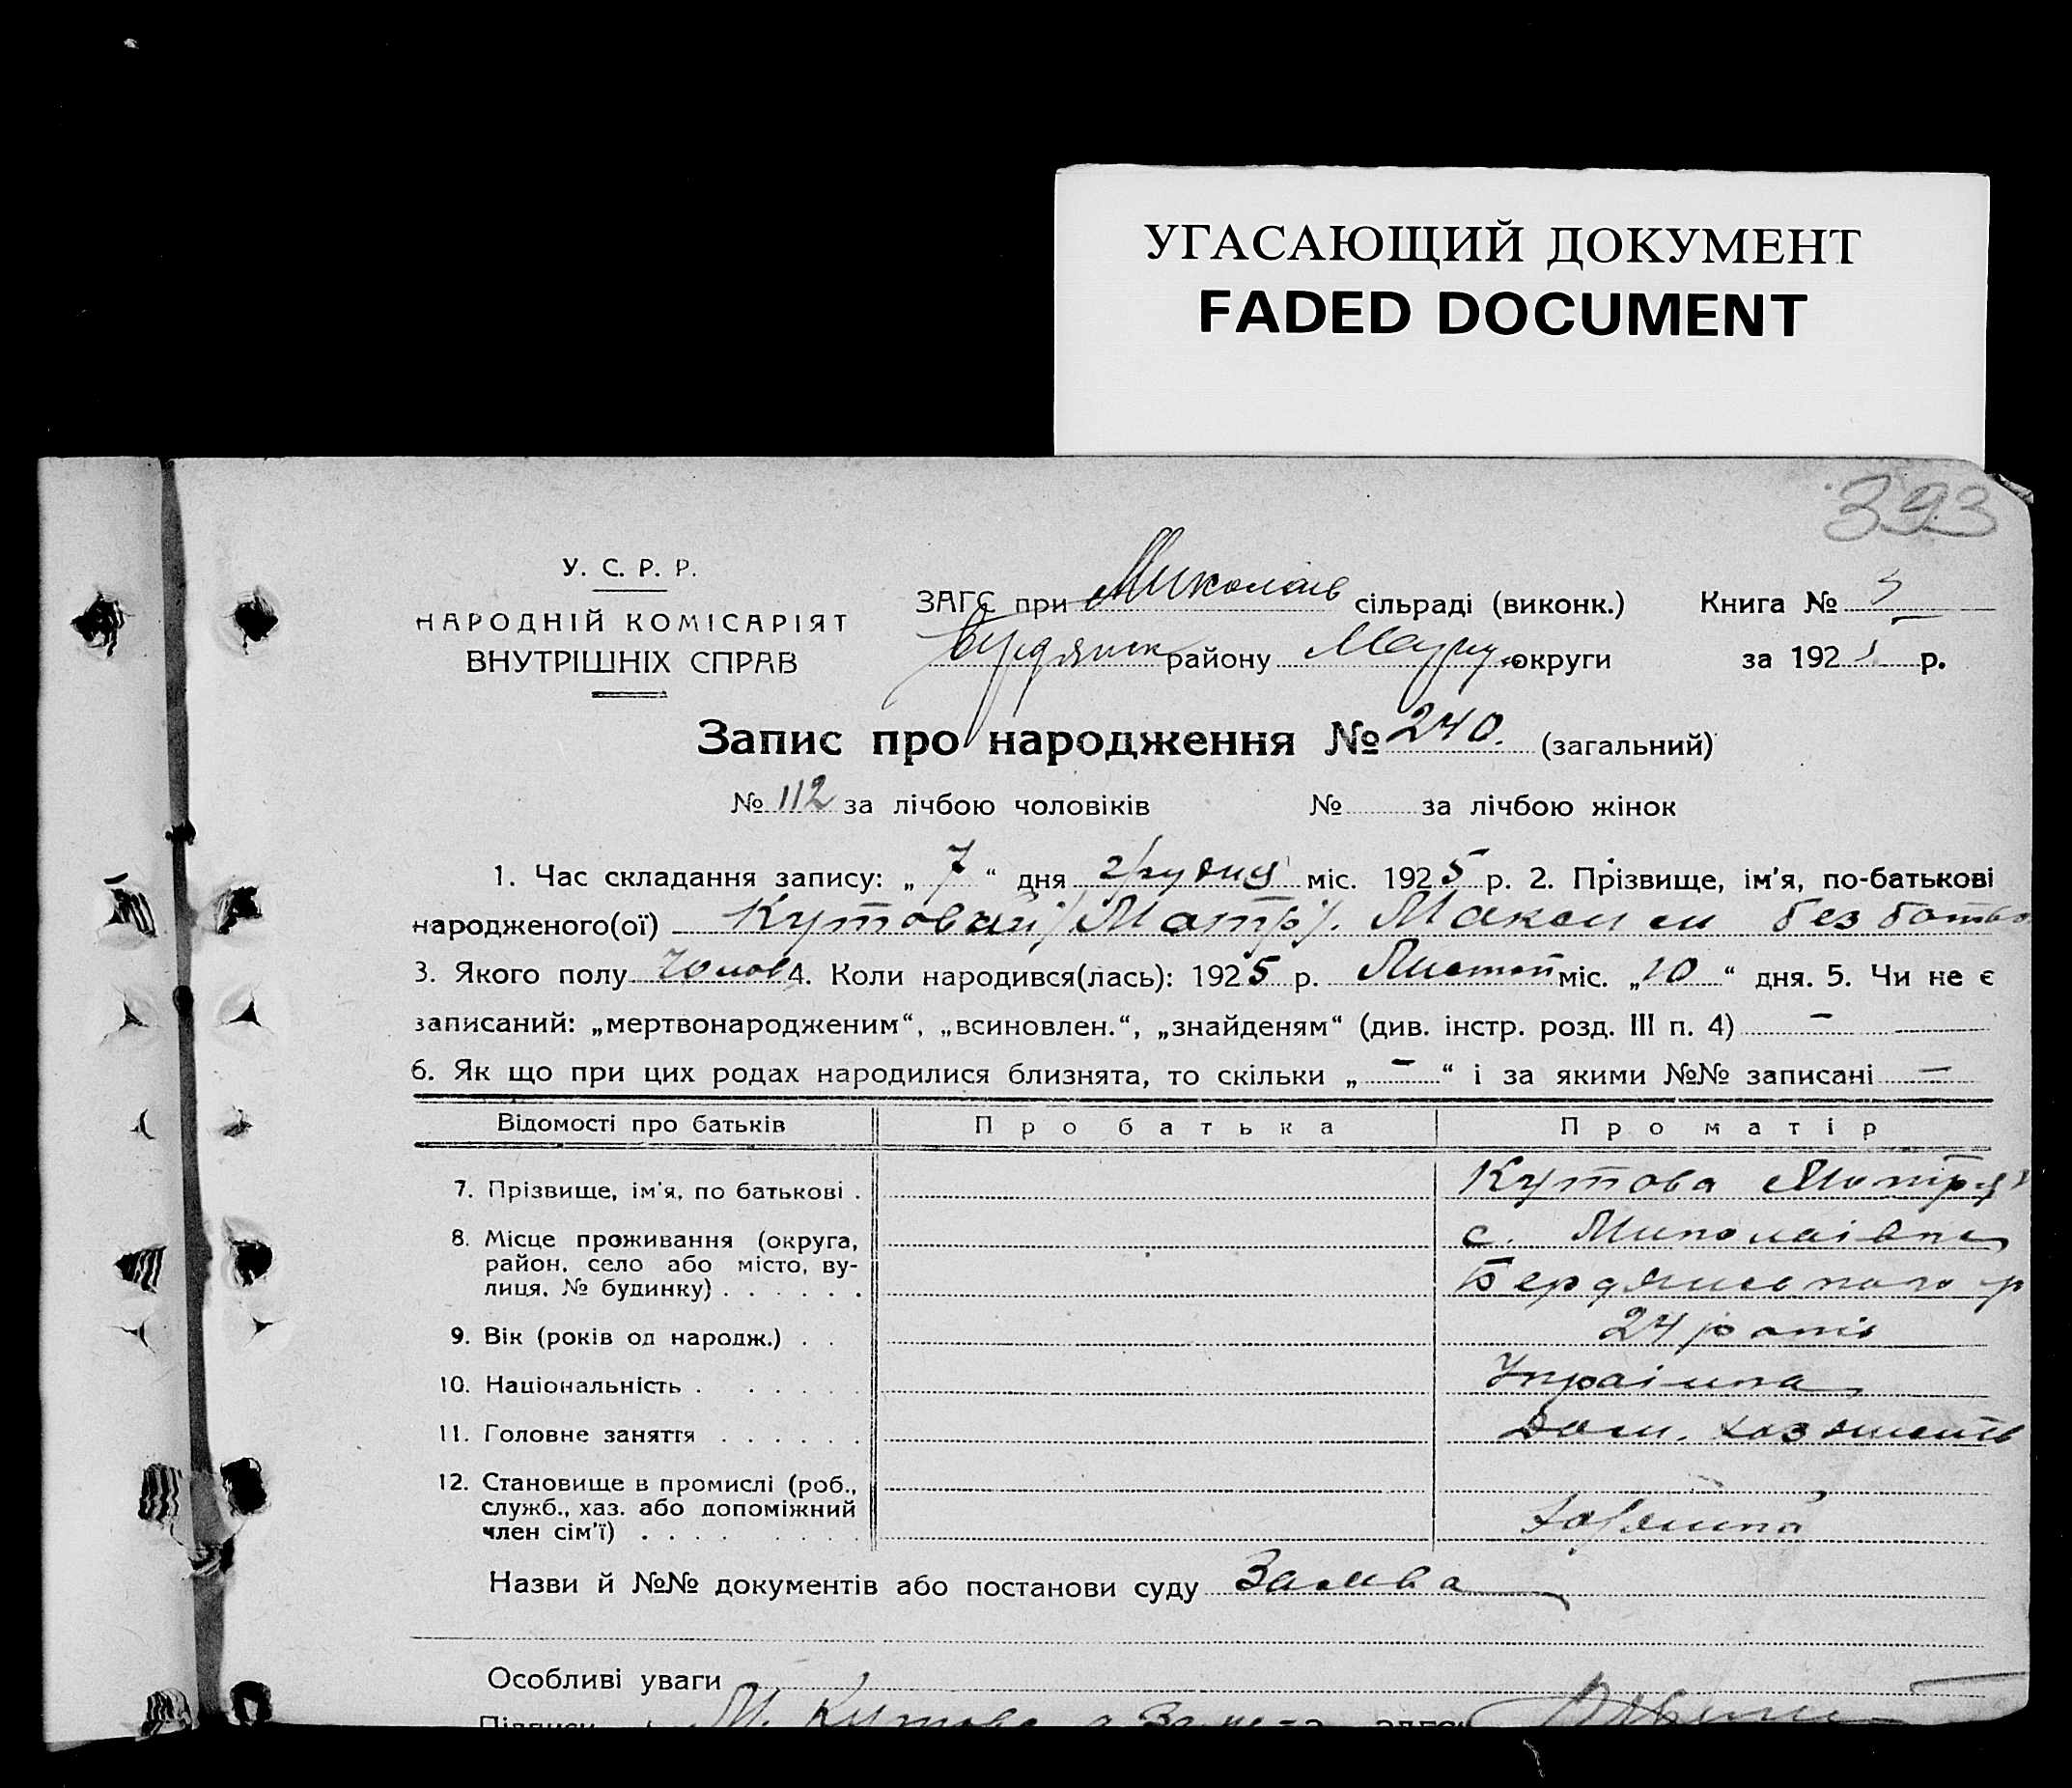 УГАСАЮЩИЙ ДОКУМЕНТ
FADED DOCUMENT
393
У. С. Р. Р.
НАРОДНІЙ КОМІСАРІЯТ
ВНУТРІШНІХ СПРАВ
ЗАГС при Миколаїв сільраді (виконк.) Книга №
Бердянск району Маріу. округи за 192 р.
Запис про народження № 240. (загальний)
№ 112 за лічбою чоловіків № за лічбою жінок
1. Час складання запису: „ 7 “ дня грудня міс. 1925 р. 2. Прізвище, ім'я, по-батькові
народженого(ої) Кутовий Максим без батьк
3. Якого полу чолов 4. Коли народився(лась): 1925 р. Листоп міс. „10“ дня. 5. Чи не є
записаний: „мертвонародженим“, „всиновлен.“, „знайденям“ (див. інстр. розд. III п. 4) —
6. Як що при цих родах народилися близнята, то скільки „ — “ і за якими №№ записані —
Відомості про батьків Про батька Про матір
7. Прізвище, ім'я, по батькові . Кутова Мотря
8. Місце проживання (округа, с. Миколаївка
район, село або місто, ву-
лиця, № будинку) . . . . . . Бердянського р
9. Вік (років од народж.) . . 24 років
10. Національність . . . . . . Українка
11. Головне заняття . . . . . . Дом.
12. Становище в промислі (роб.,
служб., хаз. або допоміжний
член сім'ї) . . . .
Назви й №№ документів або постанови суду Заява
Особливі уваги
Підписи М. Кутова